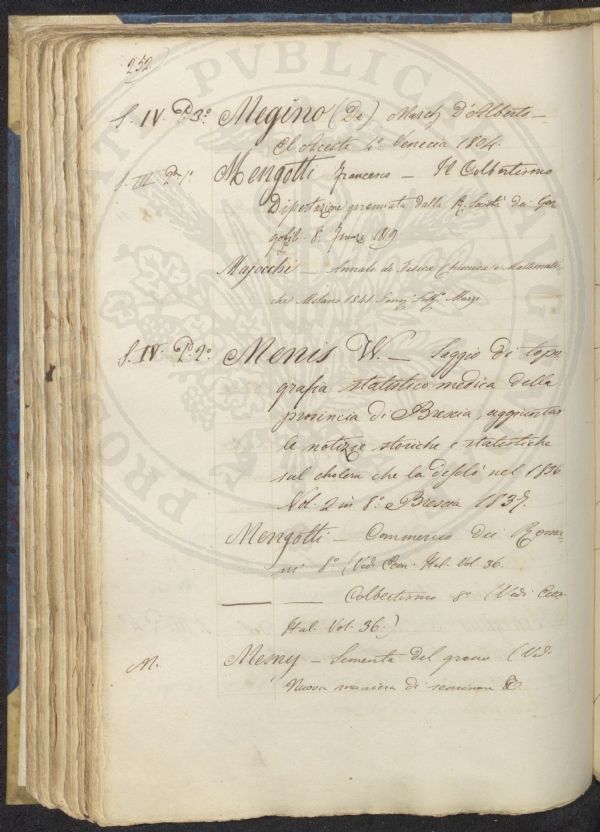 252.
S. IV. P. 3.° Megino (De) March. d'Alberto —
4.° Venezia 1804.
S. III. P. 1.° Mengotti Francesco — Il Colbertismo
Dissertazione premiata dalla R. Società dei Geor
gofili 8.° Firenze 1819
Majocchi — Annale di Fisica Chimica e Matemati-
che Milano 1841. Marzo
S. IV. P. 2.° Menis W. — Saggio di topo
grafia statistico medica della
provincia di Brescia, aggiuntevi
le notizie storiche e statistiche
sul cholera che la desolò nel 1836
Vol. 2 in 8.° Brescia 1837.
Mengotti — Commercio dei Roma-
ni 8.° (Vedi Econ. Ital. Vol. 36.
— — Colbertismo 8.° (Vedi Econ.
Ital. Vol. 36.)
M. Mesny — Sementa del grano (Ved.
Nuova maniera di seminare &.
PUBLICA